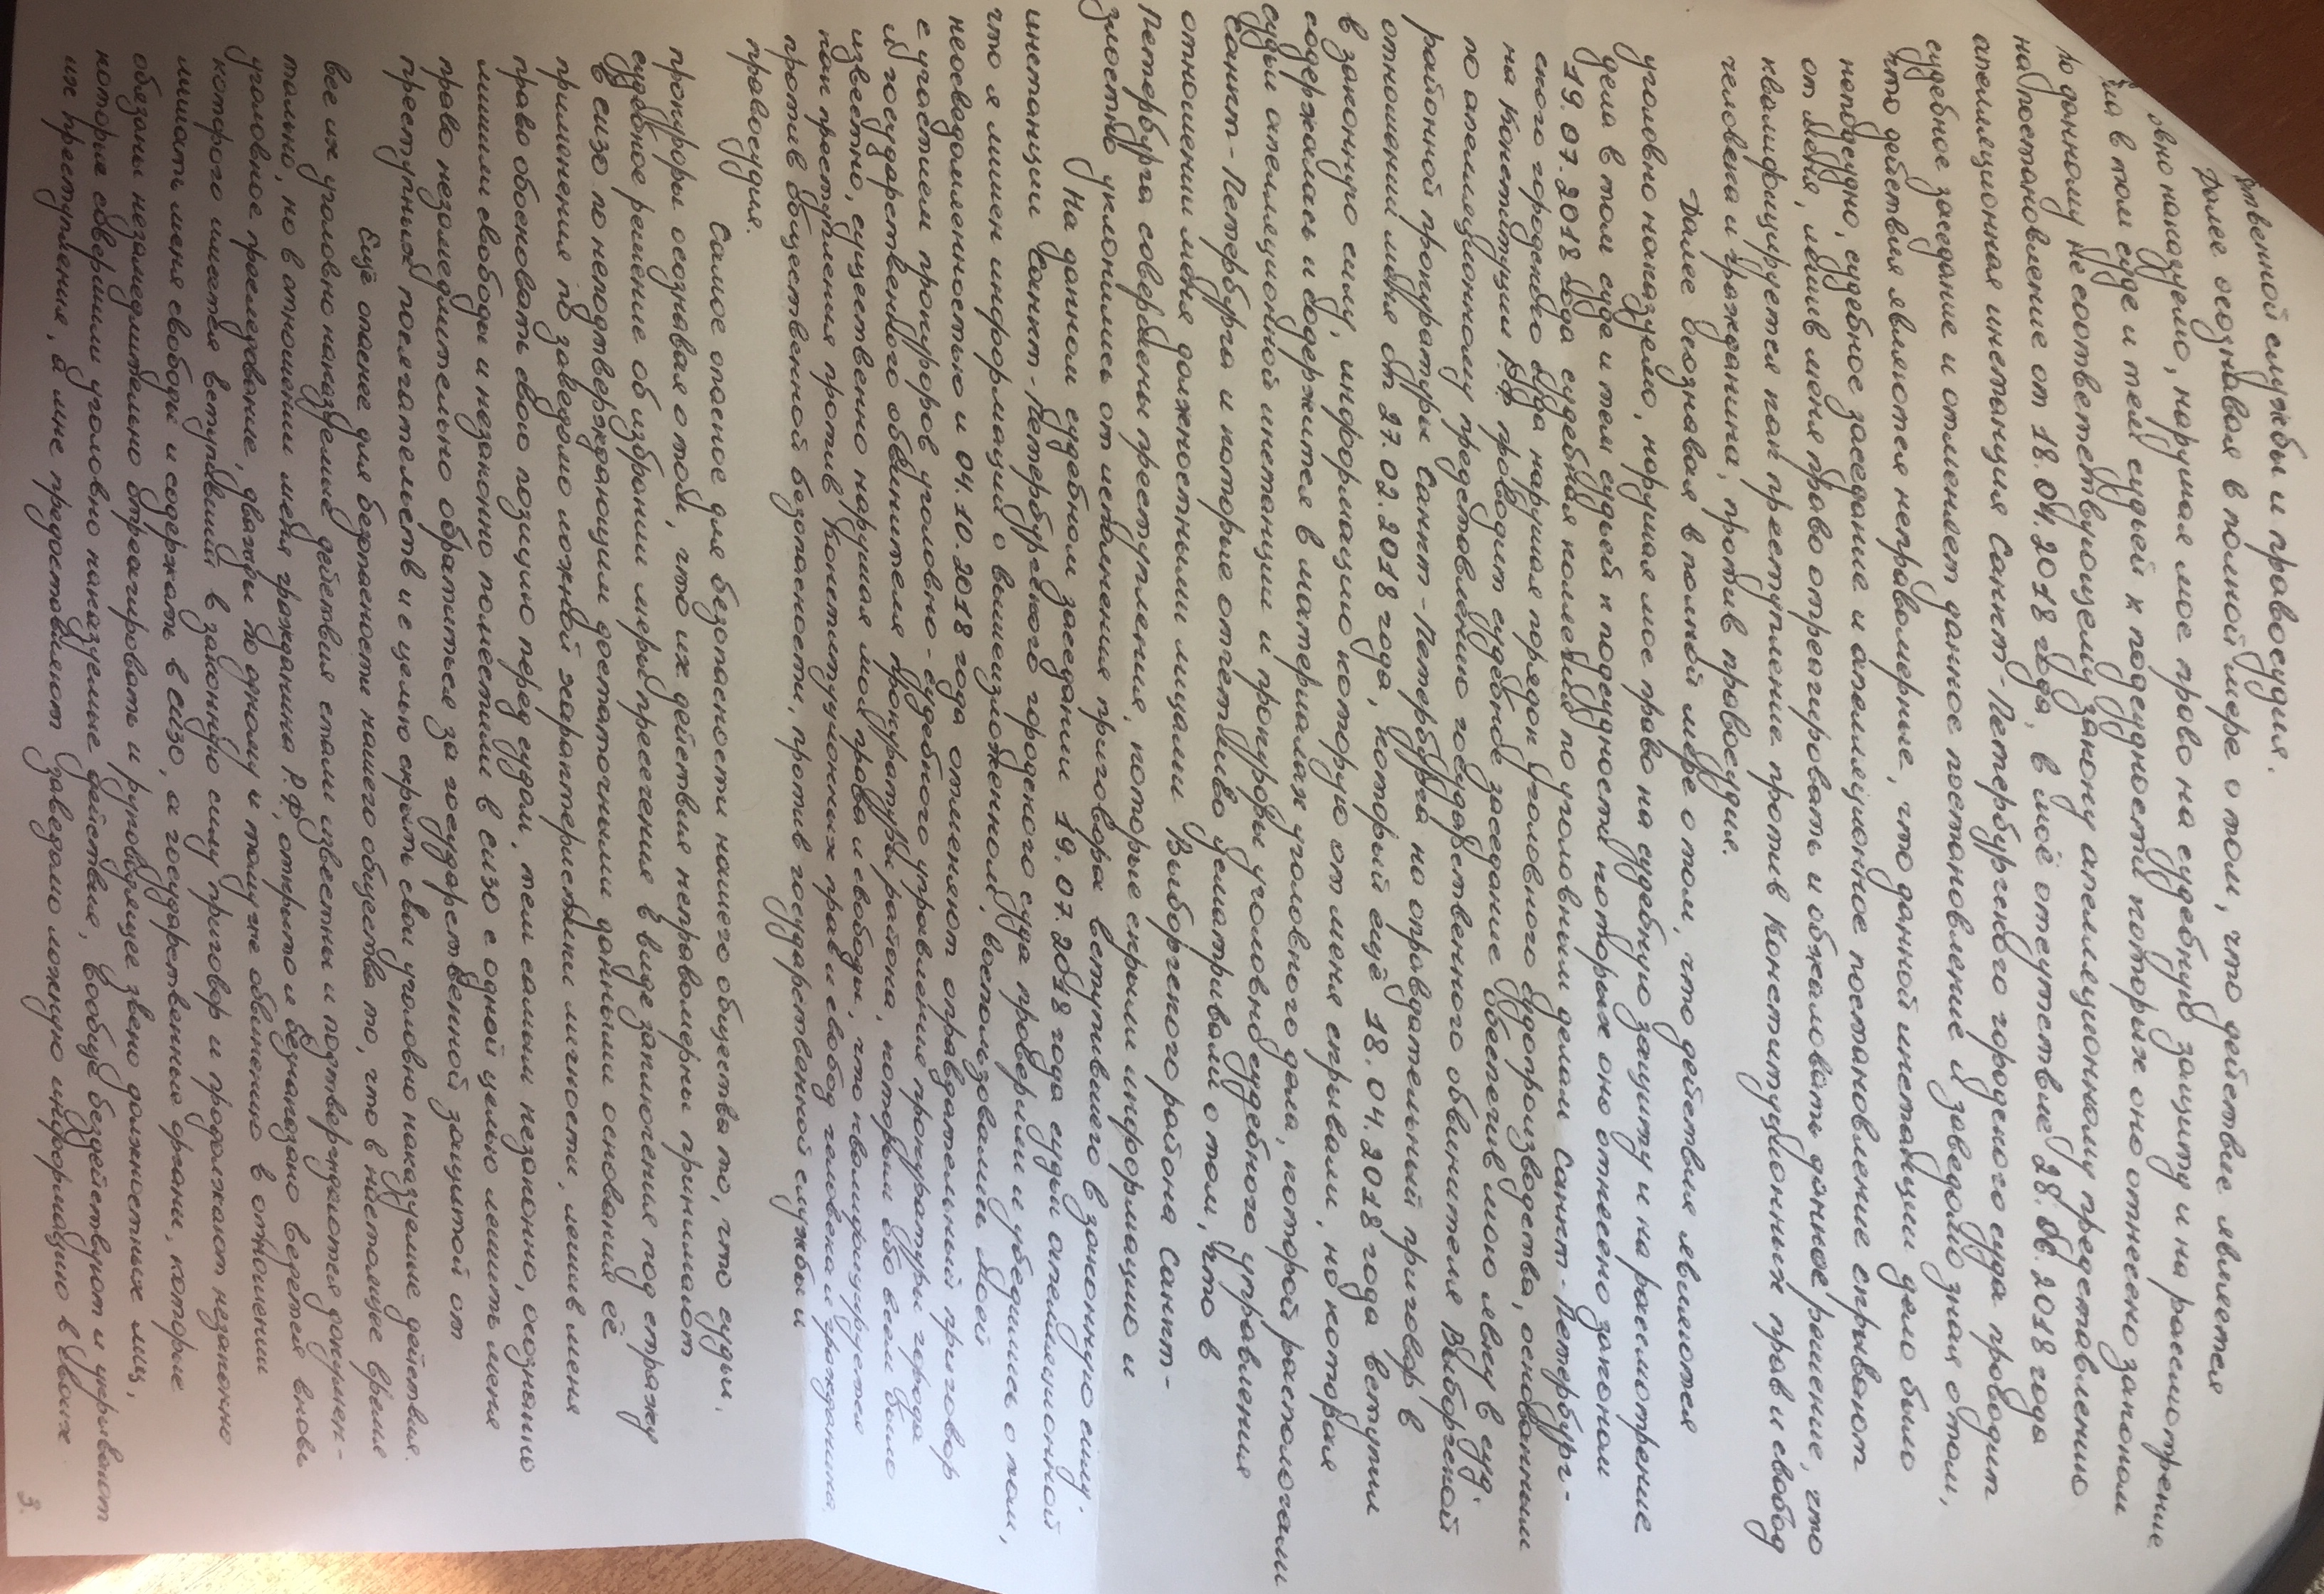 ственной службы и правосудия.
Далее осознавая в полной мере о том, что действие является
овно наказуемо, нарушая мое право на судебную защиту и на рассмотрение
ла в том суде и тем судьей к подсудности которых оно отнесено законом
по данному не соответствующему закону апелляционному представлению
на постановление от 18.04.2018 года, в моё отсутствие 28.06.2018 года
апелляционная инстанция Санкт-Петербургского городского суда проводит
судебное заседание и отменяет данное постановление и заведомо зная о том,
что действия являются неправомерные, что данной инстанции дело было
неподсудно, судебное заседание и апелляционное постановление скрывают
от меня, лишив меня право отреагировать и обжаловать данное решение, что
квалифицируется как преступление против Конституционных прав и свобод
человека и гражданина, против правосудия.
Далее осознавая в полной мере о том, что действия являются
уголовно наказуемо, нарушая мое право на судебную защиту и на рассмотрение
дела в том суде и тем судьей к подсудности которых оно отнесено законом
19.07.2018 года судебная коллегия по уголовным делам Санкт-Петербург-
ского городского суда нарушая порядок уголовного судопроизводства, основанным
на Конституции Р.Ф проводит судебное заседание обеспечив мою явку в суд,
по апелляционному представлению государственного обвинителя Выборгской
районной прокуратуры Санкт-Петербурга на оправдательный приговор в
отношении меня от 27.02.2018 года, который ещё 18.04.2018 года вступил
в законную силу, информацию которую от меня скрывали, но которая
содержалась и содержится в материалах уголовного дела, которой располагали
судьи апелляционной инстанции и прокуроры уголовно-судебного управления
Санкт-Петербурга и которые отчетливо усматривали о том, что в
отношении меня должностными лицами Выборгского района Санкт-
Петербурга совершены преступления, которые скрыли информацию и
злостно уклонились от исполнения приговора вступившего в законную силу.
На данном судебном заседании 19.07.2018 года судьи апелляционной
инстанции Санкт-Петербургского городского суда проверили и убедились о том,
что я лишен информаций о вышеизложенном, воспользовались моей
неосведомленностью и 04.10.2018 года отменяют оправдательный приговор
с участием прокуроров уголовно-судебного управление прокуратуры города
и государственного обвинителя прокуратуры района, которым обо всем было
известно, существенно нарушая мои права и свободы, что квалифицируется
как преступления против Конституционных прав и свобод человека и гражданина,
против общественной безопасности, против государственной службы и
правосудия.
Самое опасное для безопасности нашего общества то, что судьи,
прокуроры осознавая о том, что их действия неправомерны принимают
судебное решение об избрании меры пресечения в виде заключения под стражу
в сизо по неподтверждающим достаточными данными основания её
применения по заведомо ложной характеристики личности, лишив меня
право обосновать свою позицию перед судом, тем самым незаконно, осознанно
лишили свободы и незаконно поместили в сизо с одной целью лишить меня
право незамедлительно обратиться за государственной защитой от
преступных посягательств и с целью скрыть свои уголовно наказуемые действия.
Ещё опаснее для безопасности нашего общества то, что в настоящее время
все их уголовно наказуемые действия стали известны и подтверждаются докумен-
тально, но в отношении меня гражданина Р.Ф, открыто и безнаказано ведется вновь
уголовное преследование, дважды по одному и тому же обвинению в отношении
которого имеется вступивший в законную силу приговор и продолжают незаконно
лишать меня свободы и содержать в сизо, а государственные органы, которые
обязаны незамедлительно отреагировать и руководящее звено должностных лиц,
которые совершили уголовно наказуемые действия, вообще бездействуют и укрывают
их преступления, а мне предоставляют заведомо ложную информацию в своих
3.